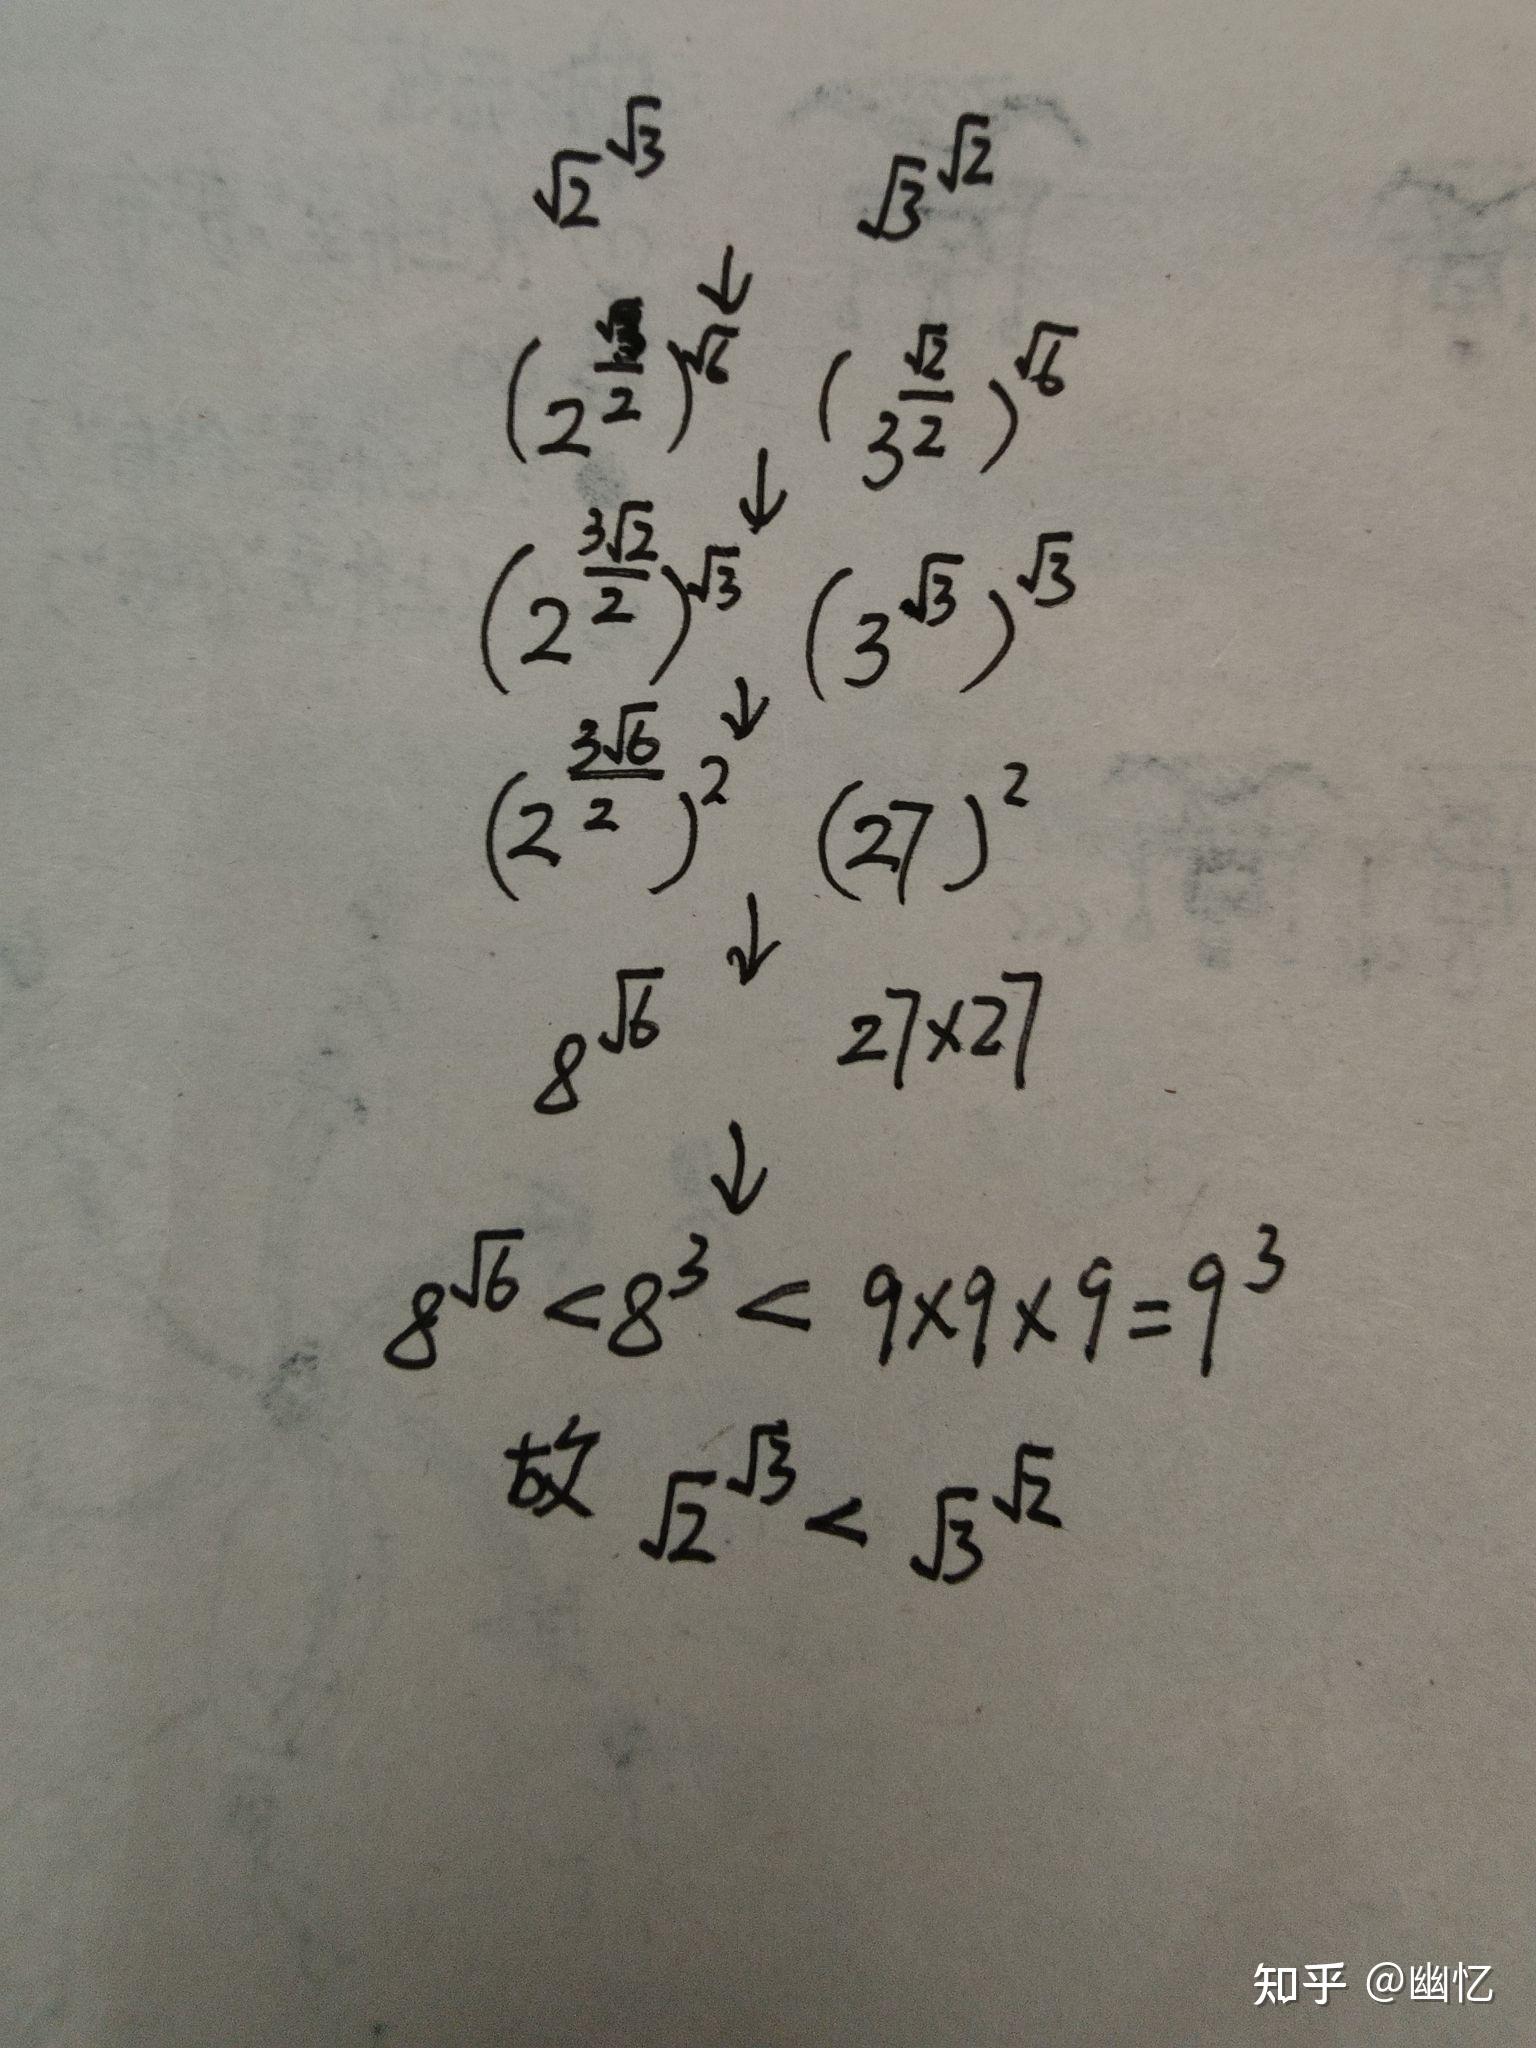 √2^√3 √3^√2
↓
(2^(/2))^√6 (3^(√2/2))^√6
↓
(2^(3√2/2))^√3 (3^√3)^√3
↓
(2^(3√6/2))^2 (27)^2
↓
8^√6 27×27
↓
8^√6 < 8^3 < 9×9×9=9^3
故 √2^√3 < √3^√2
知乎 @幽忆